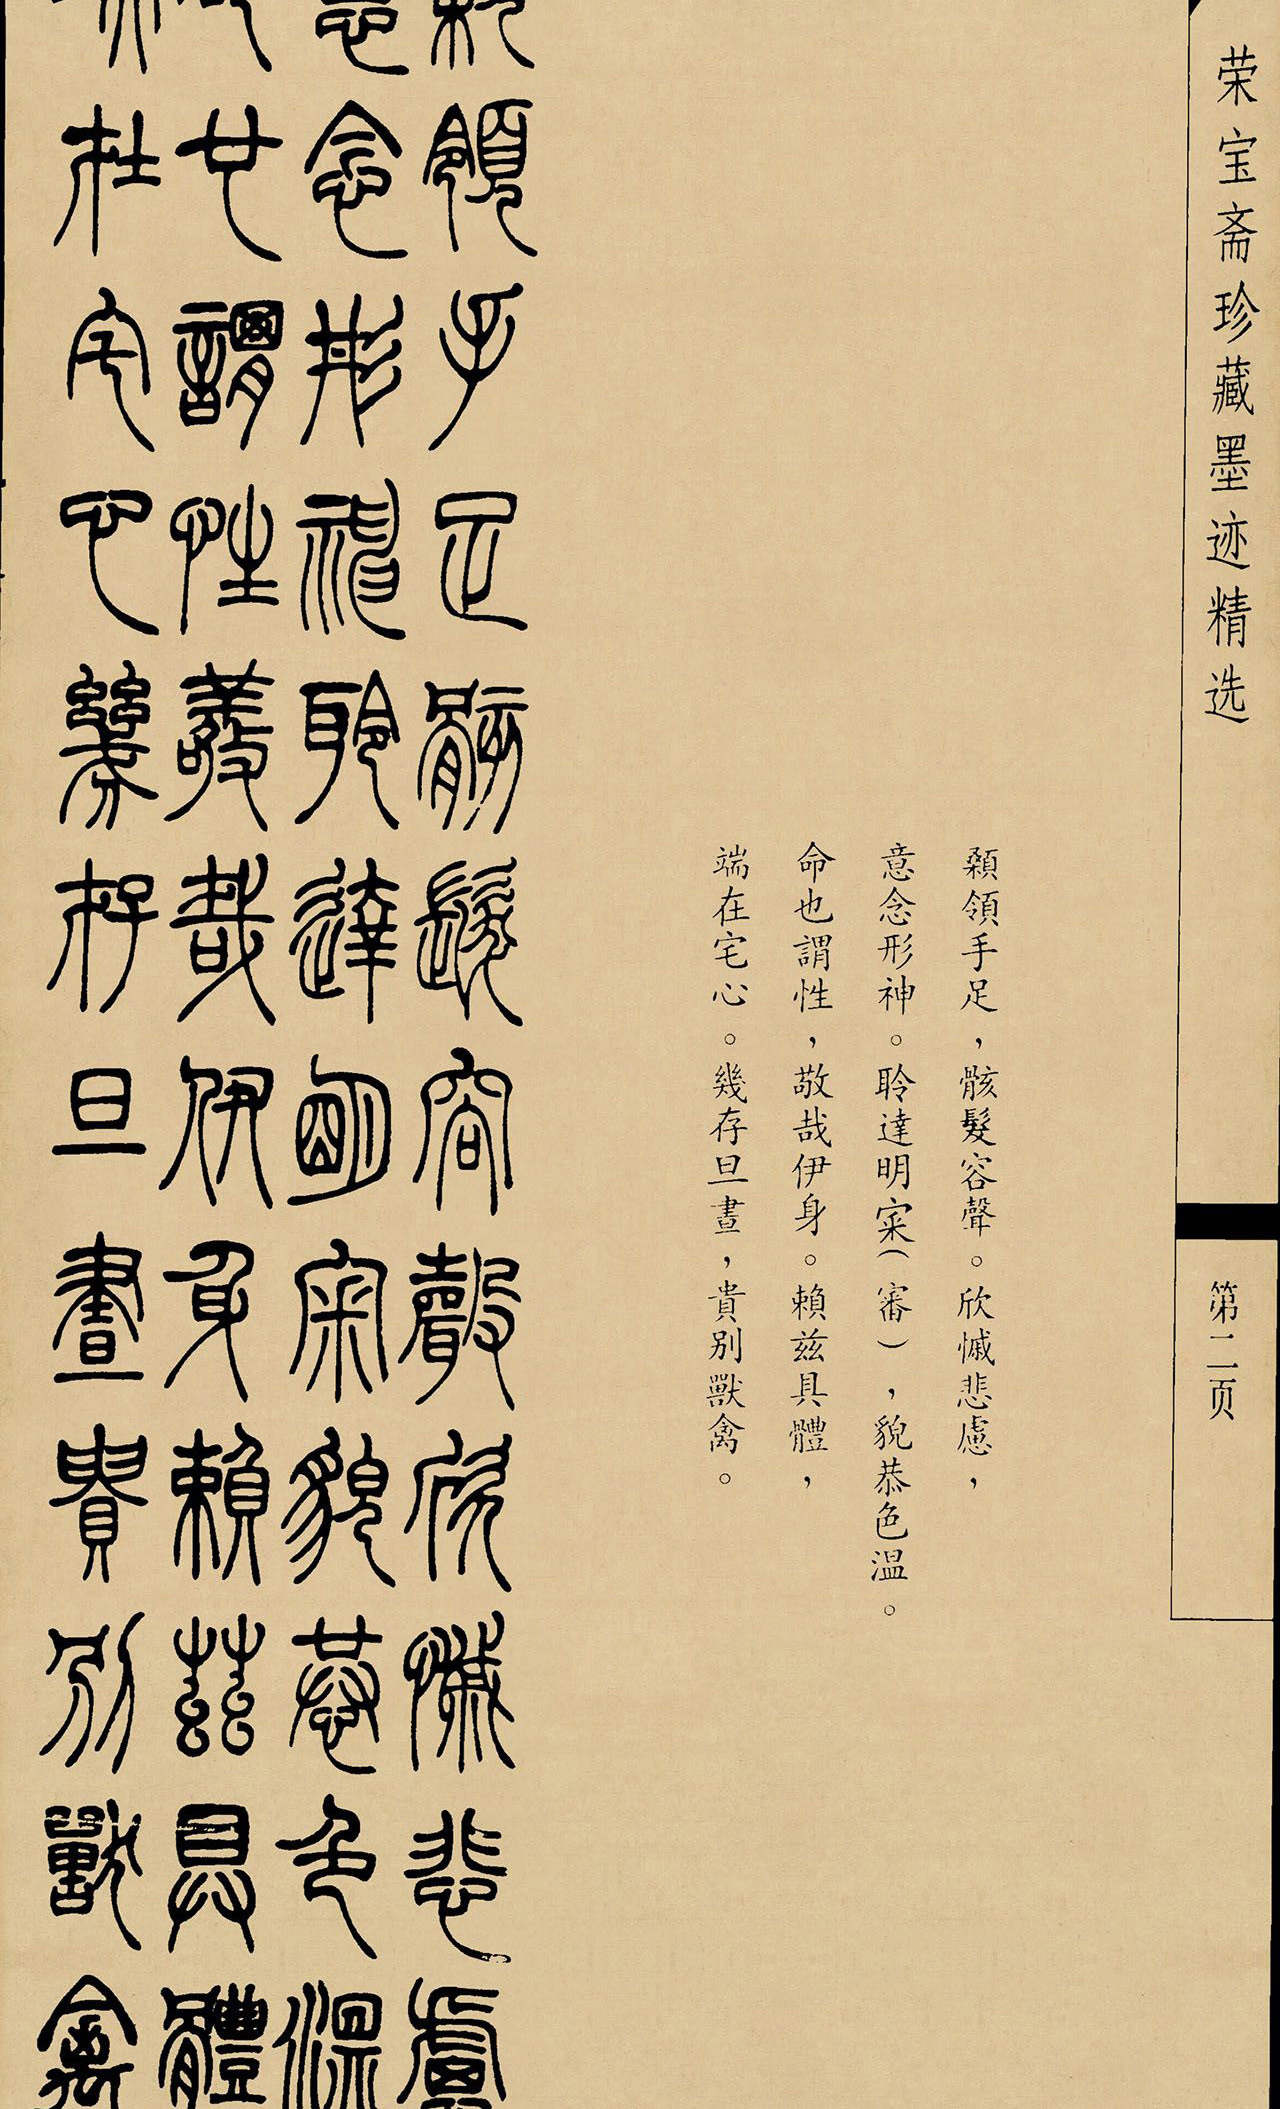 荣宝斋珍藏墨迹精选
第二页
顙領手足，骸髮容聲。欣慽悲慮，
意念形神。聆達明宷（審），貌恭色温。
命也謂性，敬哉伊身。賴兹具體，
端在宅心。幾存旦晝，貴别獸禽。
領手足骸髮容聲欣慽悲慮
意念形神聆達明宷貌恭色温
也謂性敬哉伊身賴兹具體
在宅心幾存旦晝貴别獸禽